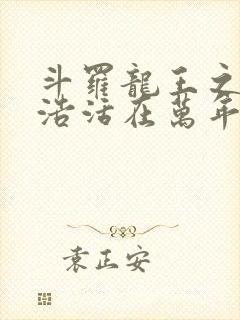 斗羅龍王之
浩活在萬年
袁正安